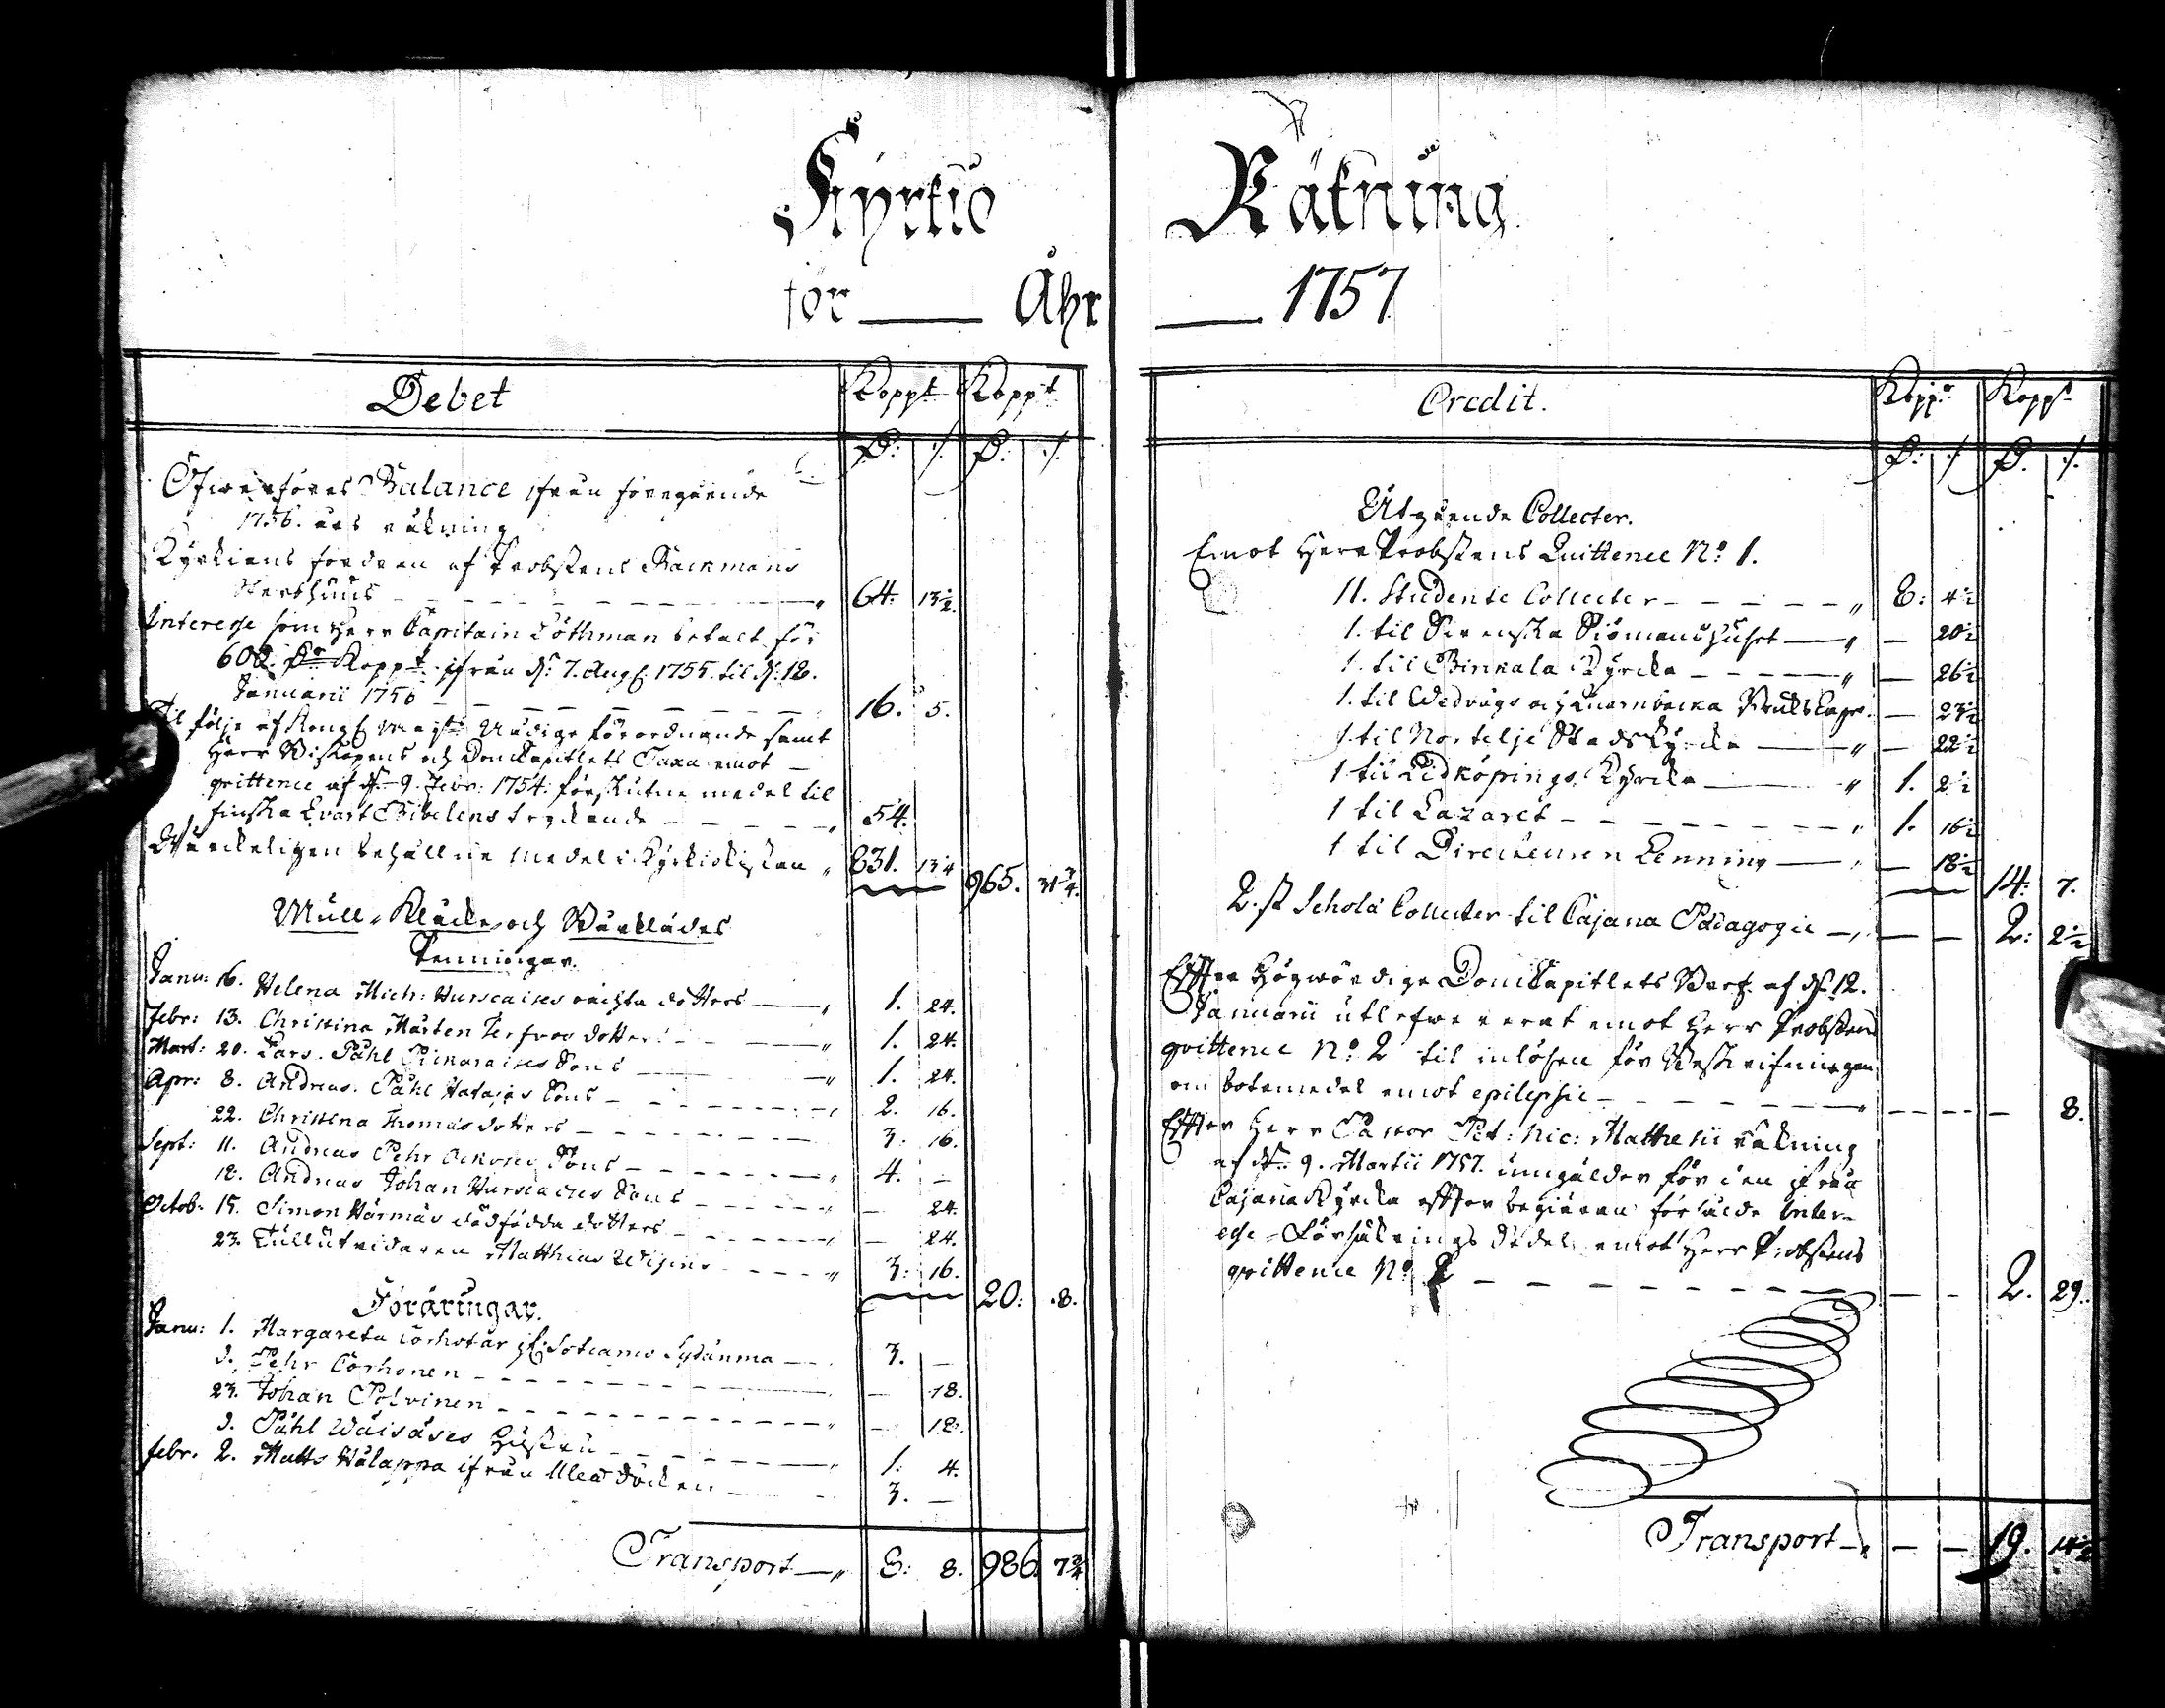 Kyrkio Räkning
för Åhr 1757
Debet Koppt Koppt
D: ./. D: ./.
Öfwerföres Balance ifrån föregående
1756. års räkning
Kyrkians fordran af Probstens Backmans
Sterbhuus 64. 13½.
Interesse som Herr Capitain Löthman betalt för
600. Dr Koppt ifrån d: 7. Aug: 1755. til d: 12.
Januarii 1756 16. 5.
Til följe af Kongl Maysts Nådiga förordnande samt
Herr Biskopens och DomCapitlets Taxa emot
qvittence af d. 9. Febr: 1754. förskutne medel til
finska Qvart Bibelens tryckande 54.
Wärckeligen behållne medel i Kyrkiokistan 831. 13¼ 965. 31¾.
Mull-Klåcke och Bårklädes
Penningar.
Janu: 16. Helena Mich: Hurscaises ächta dotters 1. 24.
Febr: 13. Christina Mårten Tervos dotters 1. 24.
Mart: 20. Lars Påhl Pickaraises Sons 1. 24.
Apr: 8. Andreas Påhl Hatajas Sons 2. 16.
22. Christina Thomas dotters 3. 16.
Sept: 11. Andreas Pehr Sons 4. —
12. Andreas Johan Hurscaises Sons — 24.
Octob. 15. Simon Härmäs dödfödda dotters — 24.
23. Tullutridaren Matthias 3: 16. 20: 8.
Föräringar.
Janu: 1. Margareta Corhotar Sotcamo Sydänma 3. —
d. Pehr Corhonen — 18.
23. Johan Polvinen — 12.
d. Påhl Wäisäses Hustru 1. 4.
Febr. 2. Matts Hålappa ifrån Ulea Vocken 3. —
Transport 8: 8. 986. 7¾
Credit. Koppt Koppt
D: ./. D. ./.
Utgående Collecter.
Emot Herr Probstens Quittence No 1.
11. Studente Collecter 8: 4½
1. til Svenska Siömanshuset — 20½
1. til Birkala Kyrcka — 26½
1. til Wedvågs och Quarnbacka Bruks Capel — 23½
1. til Nortelje Stads Kyrcka — 22½
1 til Lidköpings Kyrcka 1. 2½
1 til Lazaret 1. 16½
1 til Directeuren Lenning — 18½ 14: 7.
2. st Schola Collecter til Cajana Pædagogie — — 2: 2½
Effter Högwördige DomCapitlets Bref af d. 12.
Januarii utlefwererat emot Herr Probstens
qvittence No 2 til inlösen för Beskrifningen
om botemedel emot epilepsie — — — 8.
Effter Herr Pastor Pet: Nic: Mathesii räkning
af d. 9. Martii 1757. umgälder för den ifrån
Cajana Kyrcka effter begiäran försålde Inter-
esse-Försäkrings Sedel, emot Herr Probstens
qvittence No 2 — — 2. 29.
Transport — — 19. 14½